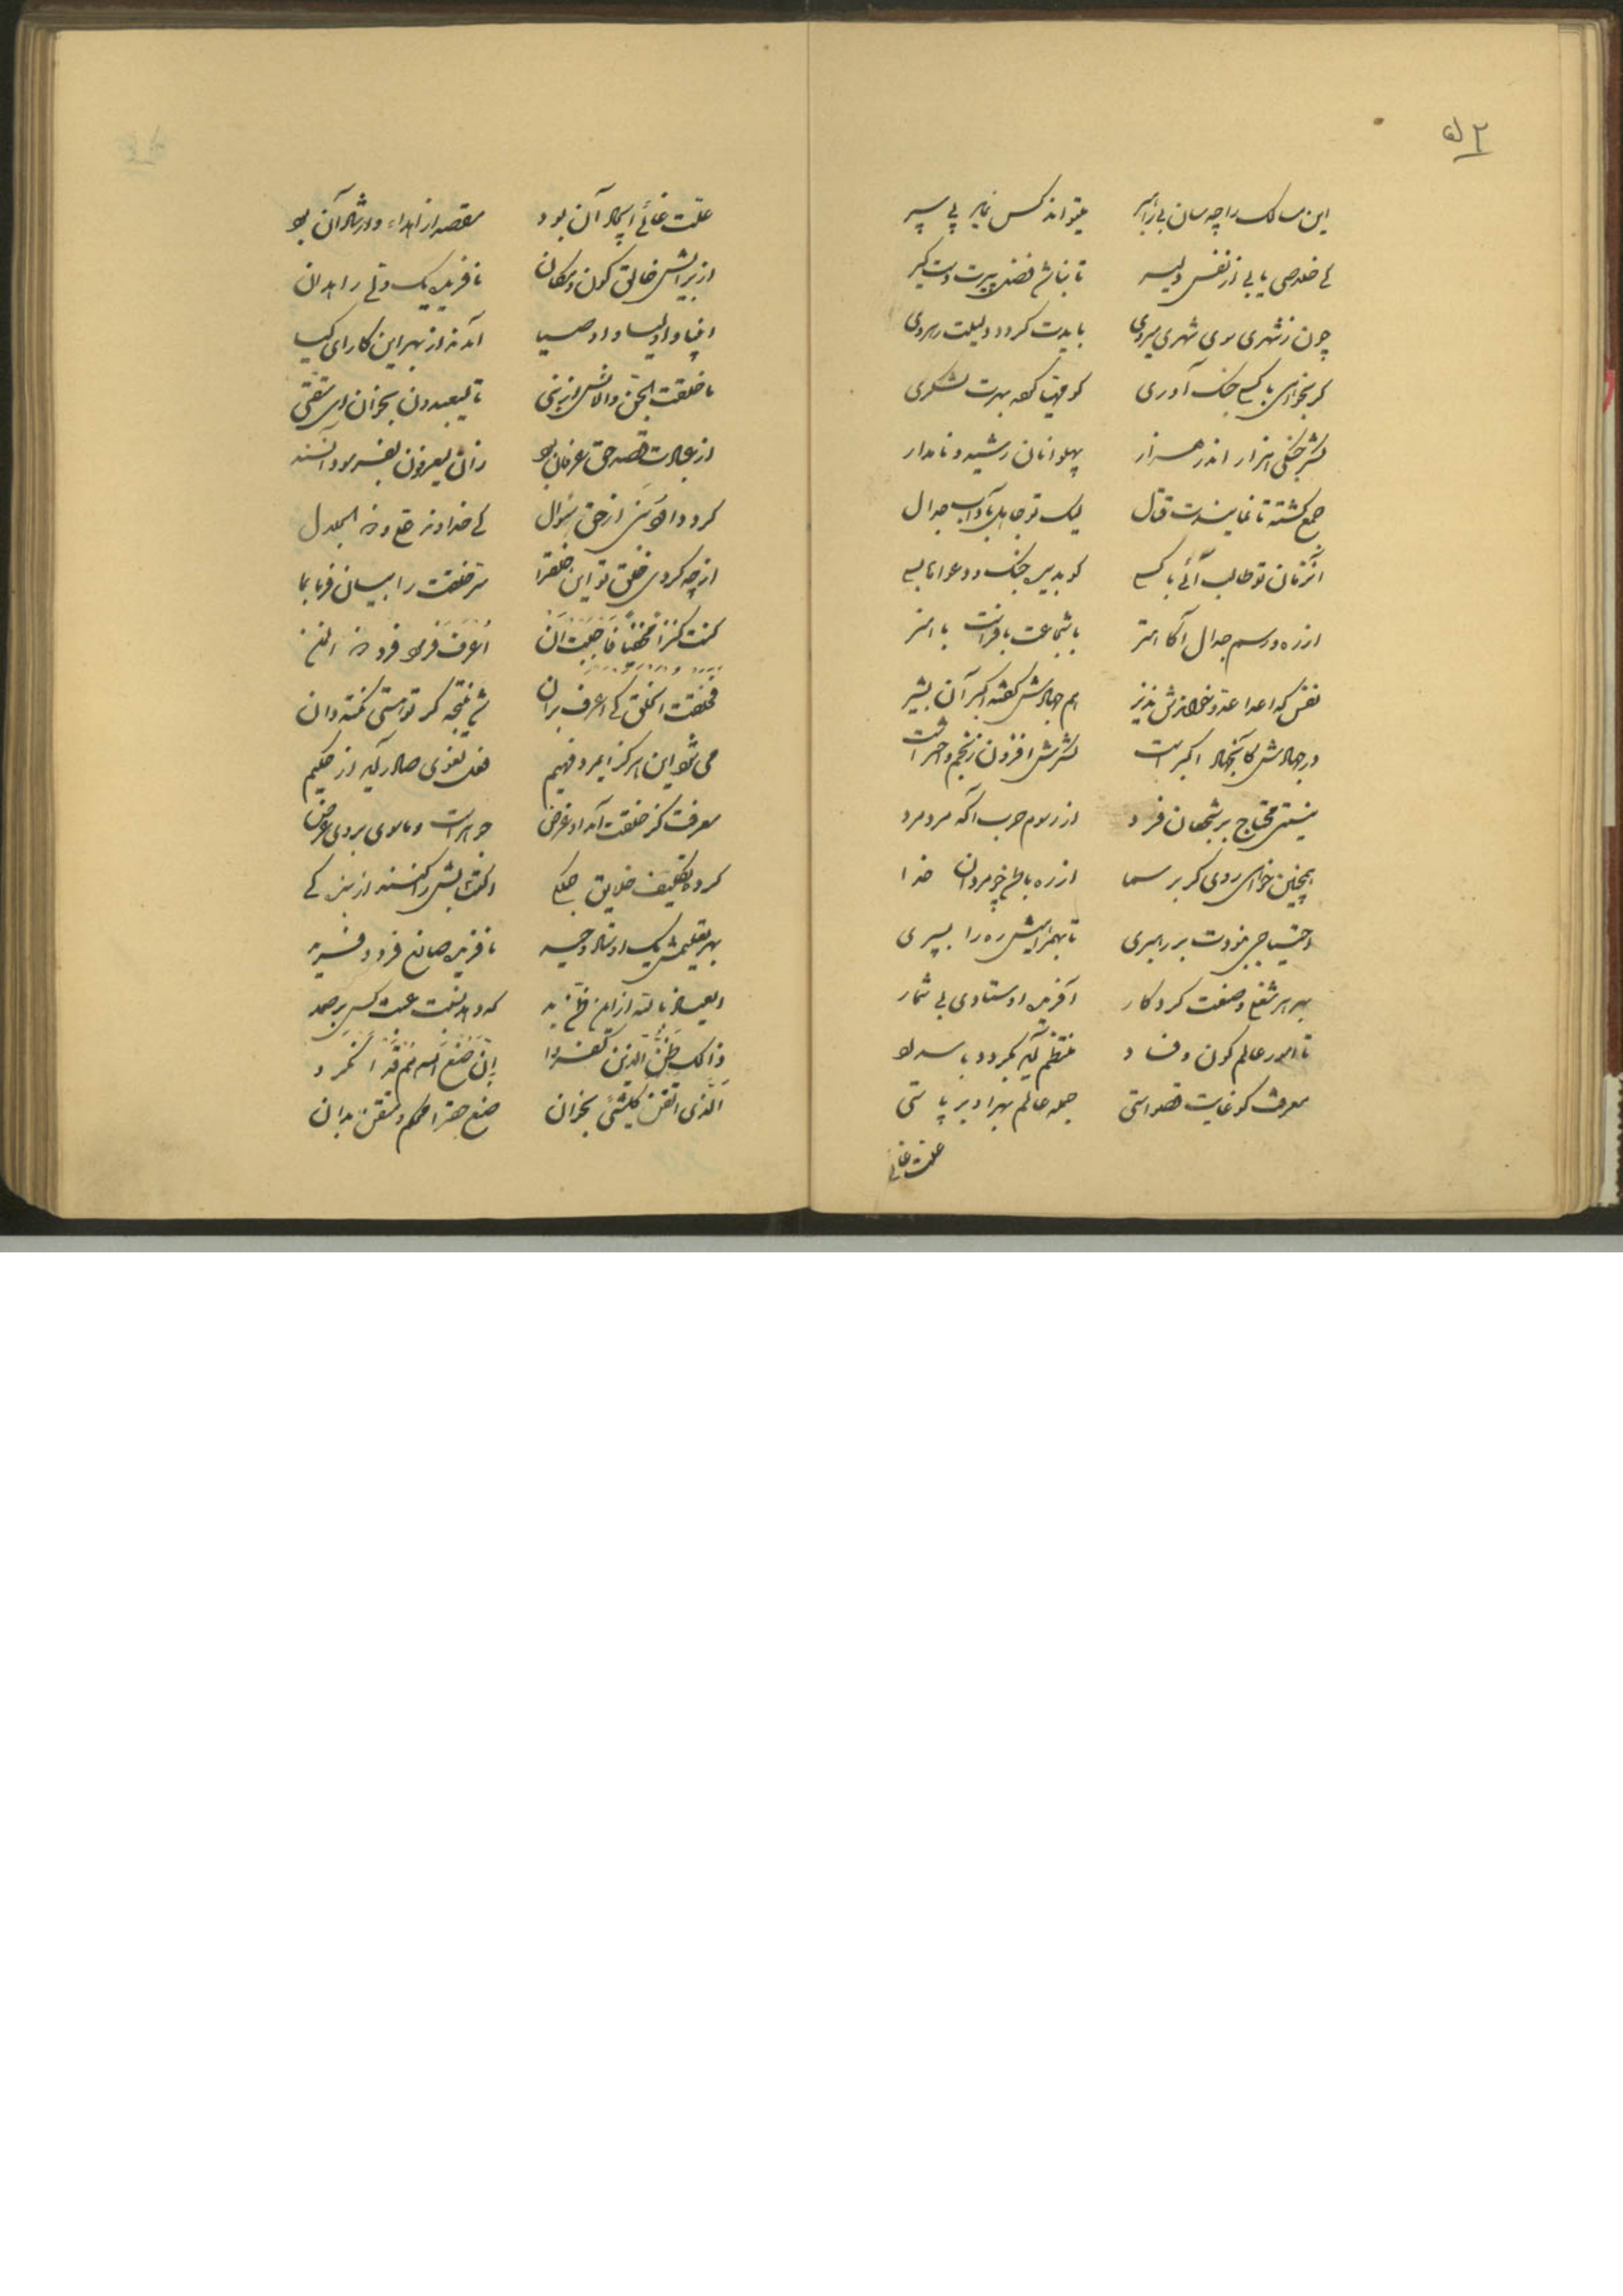 ۵۲
این مسالک را چه سان بی راهبر میتواند کس نماید پی سپر
کی خلاصی یابی از نفس دلیر تا نباشد فضل پیرت دستگیر
چون ز شهری سوی شهری میروی بایدت گردد دلیلت رهروی
گر بخواهی با کسی جنگ آوری کو مهیا کرده بهرت لشکری
لشکر جنگی هزار اندر هزار پهلوانان رشید و نامدار
جمع گشته تا نمایندت قتال لیک تو جاهل بآداب جدال
آنزمان تو طالب آئی با کسی کو بدیده جنگ و دعواها بسی
از ره و رسم جدال آگاستر با شجاعت با فراست با هنر
نفس که اعدا عدو خواندش نذیر هم جهادش گفته اکبر آن بشیر
در جهادش کآنجهاد اکبر است لشکرش افزون ز انجم و اختر است
نیستی محتاج بر شخصان فرد از رسوم حرب آگه مرد مرد
همچنین خواهی روی گر بر سما از ره باطن چو مردان خدا
احتیاجی نبودت بر رهبری تا بهمراهیش ره را بسپری
بهر هر شغل و صنعت کردگار آفریده اوستادی بی شمار
تا امور عالم کون و فساد منتظم آید نگردد با سداد
معرفت کو غایت قصد استی جمله عالم بهر او بر پاستی
علت غائی
علّت غائی ایجاد آن بود مقصد از اهداء و ارشاد آن بود
از برایش خالق کون و مکان نافریده یک ولی راهدان
انبیا و اولیا و اوصیا آمدند از بهر این کار ای کیا
ما خلقت الجن والانس از نبی تا لیعبدون بخوان ای متقی
از عبادت قصد حق عرفان بود زان لیعرفون بفرمود آنسند
کرد داود نبی از حق سؤال کی خداوند علی و ذو الجلال
از چه کردی خلق تو این خلق را سر خلقت را بیان فرما بما
کنت کنزا مخفیا فاحببت ان اعرف فرمود فرد ذو المنن
فخلقت الخلق کی اعرف بدان شد نتیجه گر تو هستی نکته دان
می شود این هرگز ای مرد فهیم فعل لغوی صادر آید از حکیم
معرفت کز خلقت آمد او غرض جوهر است و ماسوی بر وی عرض
کرده تکلیف خلایق جملگی
بهر تعلیمش یک استاد وحید نافریده صانع فرد و فرید
العیاذ بالله از این ظن بد که دهد نسبت عبث کس بر صمد
ذالک ظن الذین کفروا
الّذی اتقن کلشئ بخوان صنع حق را محکم و متقن بدان